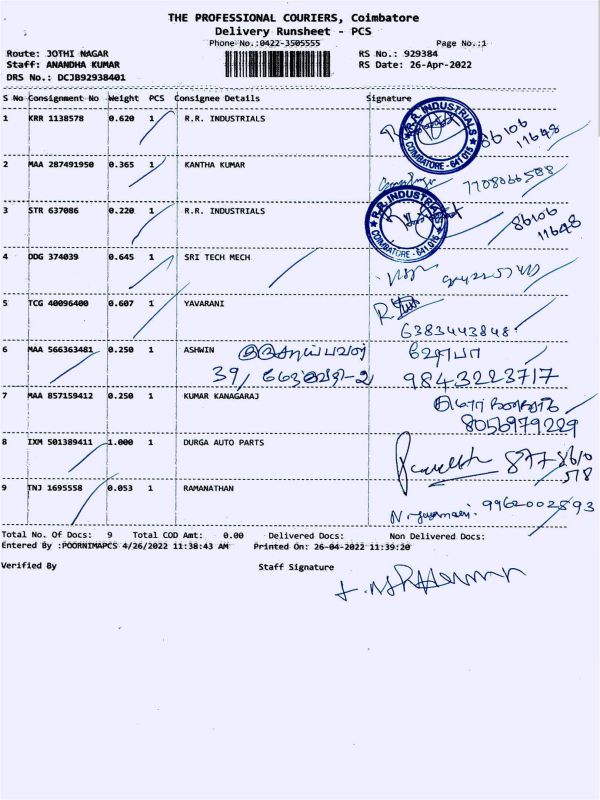 THE PROFESSIONAL COURIERS, Coimbatore
Delivery Runsheet - PCS
Phone No.:0422-3505555
Page No.:1
Route: JOTHI NAGAR
RS No.: 929384
Staff: ANANDHA KUMAR
RS Date: 26-Apr-2022
DRS No.: DCJB92938401
S No Consignment No Weight PCS Consignee Details Signature
1 KRR 1138578 0.620 1 R.R. INDUSTRIALS
R.R. INDUSTRIALS
COIMBATORE - 641 015
86106
11648
2 MAA 287491950 0.365 1 KANTHA KUMAR
7708066588
3 STR 637086 0.220 1 R.R. INDUSTRIALS
R.R. INDUSTRIALS
COIMBATORE - 641 015
86106
11648
4 DDG 374039 0.645 1 SRI TECH MECH
5 TCG 40096400 0.607 1 YAVARANI
6383443848
6 MAA 566363481 0.250 1 ASHWIN
39/
9843223717
7 MAA 857159412 0.250 1 KUMAR KANAGARAJ
8056979229
8 IXM 501389411 1.000 1 DURGA AUTO PARTS
877 8610
578
9 TNJ 1695558 0.053 1 RAMANATHAN
9962002893
Total No. Of Docs: 9 Total COD Amt: 0.00 Delivered Docs: Non Delivered Docs:
Entered By :POORNIMAPCS 4/26/2022 11:38:43 AM Printed On: 26-04-2022 11:39:20
Verified By Staff Signature